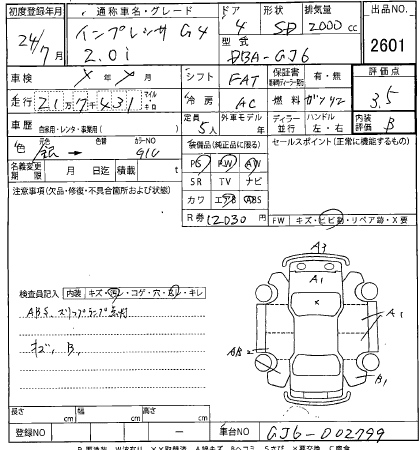 初度登録年月 通称車名・グレード ドア 形状 排気量 出品NO.
24/7月 インプレッサ G4 2.0i 4 SD 2000cc 2601
型式 DBA-GJ6
車検 X年X月 シフト FAT 保証書 有・無 評価点 3.5
走行 21万7千431 マイル キロ 冷房 AC 燃料 ガソリン
車歴 自家用・レンタ・事業用( ) 定員 5人 外車モデル ディーラー 並行 ハンドル 左・右 内装評価 B
色 元色 銀 → 色替 カラーNO G1U 装備品(純正品に限る) セールスポイント(正常に機能するもの)
名義変更期限 月 日迄 積載 t PS PW AW
注意事項(欠品・修復・不具合箇所および状態) SR TV ナビ
カワ エアB ABS
R券 12030円 FW キズ・ヒビ割・リペア跡・X要
A3
A1
検査員記入 内装 キズ・汚レ・コゲ・穴・瓦レ・キレ X
ABS、スリップランプ点灯 A1
キズ、B、 AB2
B1
長さ cm 幅 cm 高さ cm
登録NO ー 車台NO GJ6-002799